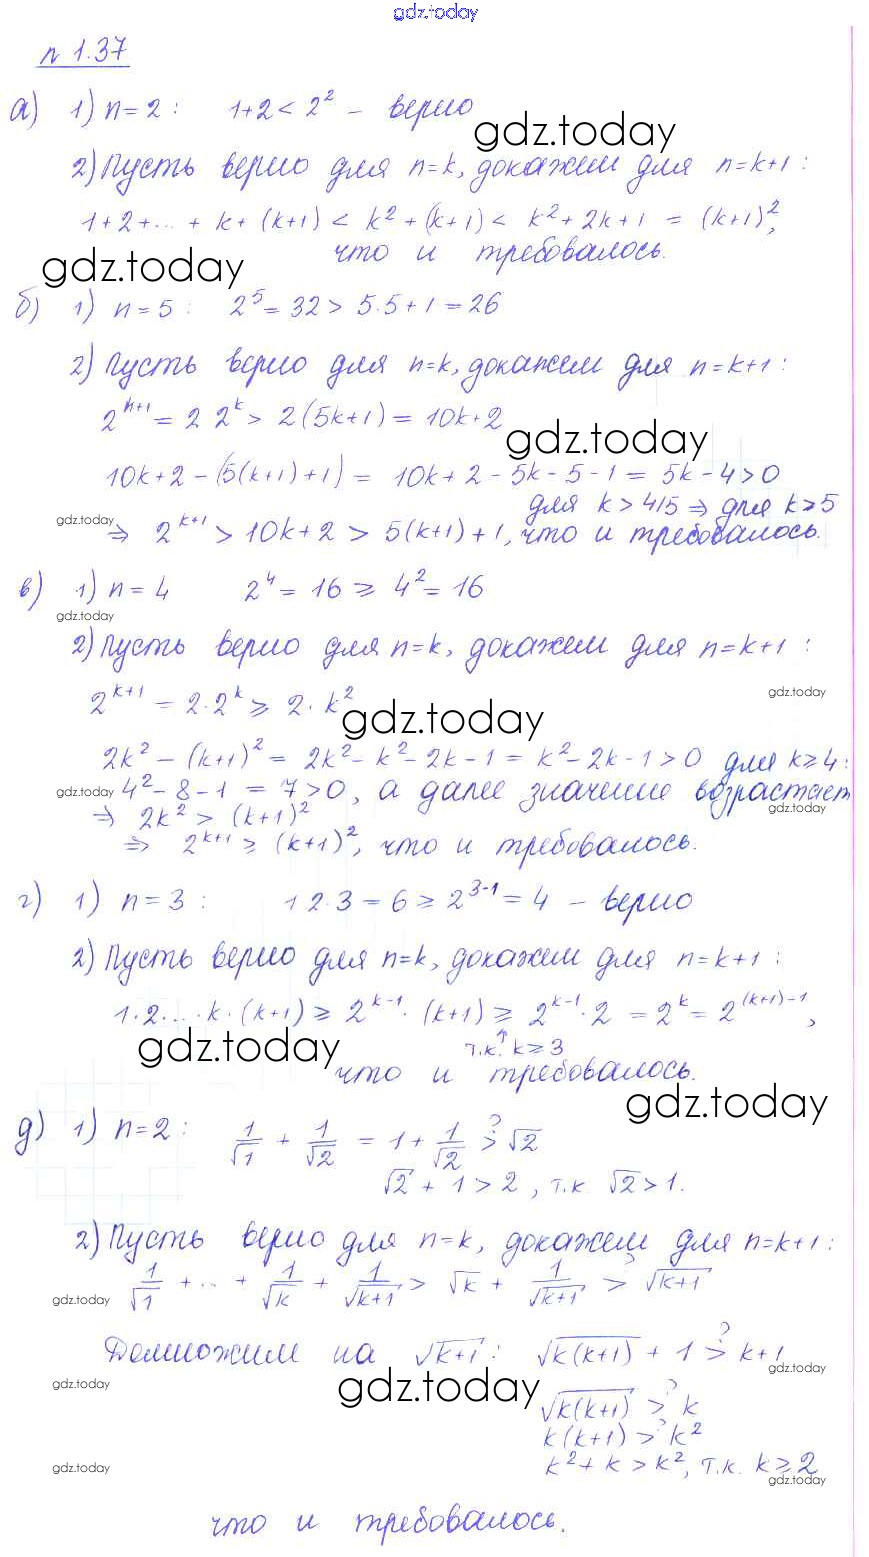 gdz.today
n 1.37
а) 1) n=2: 1+2 < 2² – верно
gdz.today
2) Пусть верно для n=k, докажем для n=k+1:
1+2+...+k+(k+1) < k²+(k+1) < k²+2k+1 = (k+1)²,
что и требовалось.
gdz.today
б) 1) n=5: 2⁵=32 > 5·5+1=26
2) Пусть верно для n=k, докажем для n=k+1:
2ⁿ⁺¹ = 2 2ᵏ > 2(5k+1) = 10k+2
gdz.today
10k+2-(5(k+1)+1) = 10k+2-5k-5-1 = 5k-4>0
для k>4/5 ⇒ для k≥5
gdz.today
⇒ 2ᵏ⁺¹ > 10k+2 > 5(k+1)+1, что и требовалось.
в) 1) n=4 2⁴=16 ≥ 4²=16
gdz.today
2) Пусть верно для n=k, докажем для n=k+1:
gdz.today
2ᵏ⁺¹ = 2·2ᵏ ≥ 2·k²
gdz.today
2k²-(k+1)² = 2k²-k²-2k-1 = k²-2k-1>0 для k≥4:
gdz.today
4²-8-1 = 7>0, а далее значение возрастает
gdz.today
⇒ 2k² > (k+1)²
⇒ 2ᵏ⁺¹ ≥ (k+1)², что и требовалось.
г) 1) n=3: 1 2·3=6 ≥ 2³⁻¹=4 – верно
2) Пусть верно для n=k, докажем для n=k+1:
1·2·...·k·(k+1) ≥ 2ᵏ⁻¹·(k+1) ≥ 2ᵏ⁻¹·2 = 2ᵏ = 2⁽ᵏ⁺¹⁾⁻¹,
gdz.today
т.к. k≥3
что и требовалось.
gdz.today
д) 1) n=2: 1/√1 + 1/√2 = 1 + 1/√2 >? √2
√2+1>2, т.к √2>1.
2) Пусть верно для n=k, докажем для n=k+1:
1/√1 + ... + 1/√k + 1/√(k+1) > √k + 1/√(k+1) >? √(k+1)
gdz.today
Домножим на √(k+1): √(k(k+1)) + 1 >? k+1
gdz.today
gdz.today
gdz.today
√(k(k+1)) >? k
k(k+1) >? k²
k²+k > k², т.к. k≥2
gdz.today
gdz.today
что и требовалось.